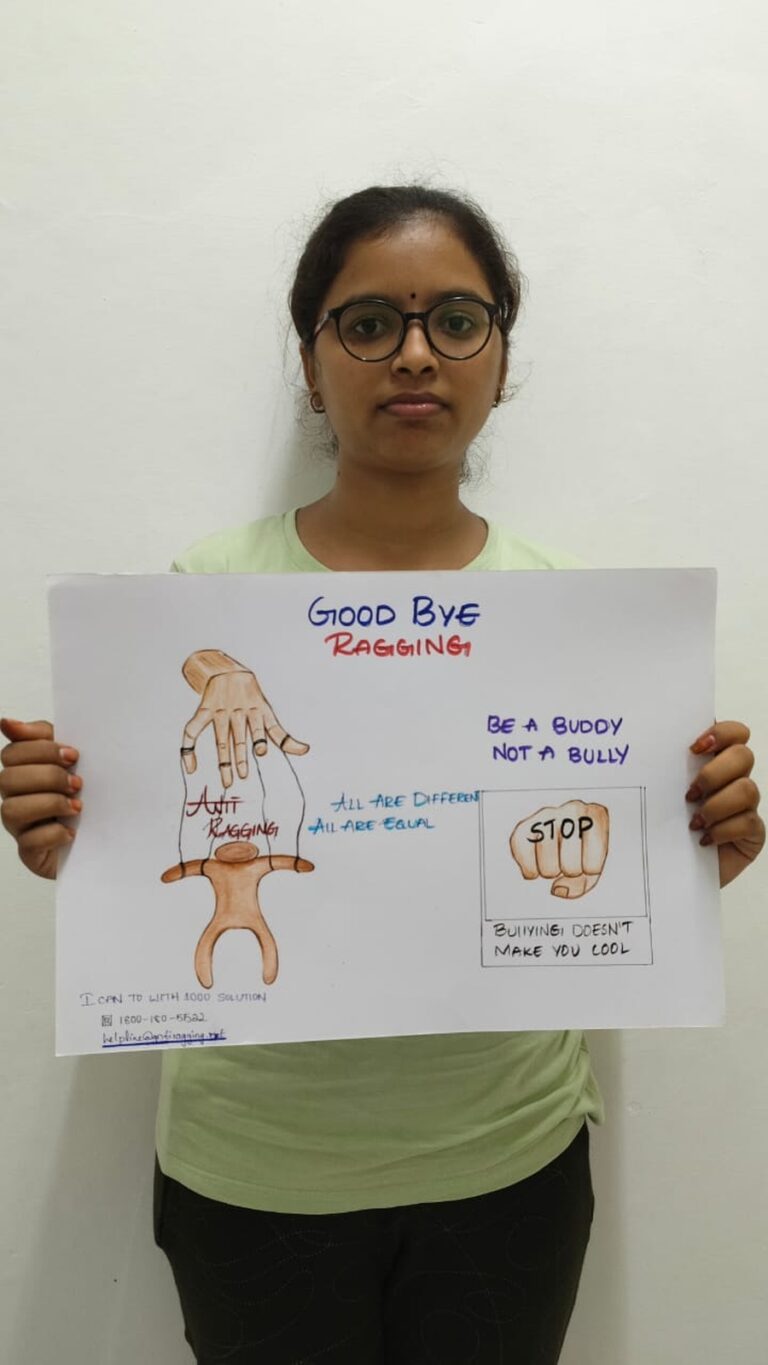 GOOD BYE
RAGGING
BE A BUDDY
NOT A BULLY
ANTI
RAGGING
ALL ARE DIFFEREN
ALL ARE EQUAL
STOP
BUllYING DOESN'T
MAKE YOU COOL
I CAN TO WITH 1000 SOLUTION
1800-180-5522
helpline@antiragging.net